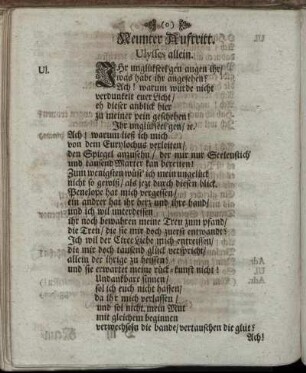 (o)
Neunter Auftritt.
Ulysses allein.
Ul. IHr unglükseelgen augen ihr/
was habt ihr angesehen!
Ach! warum wurde nicht
verdunkelt euer Licht/
eh dieser anblick hier
zu meiner pein geschehen!
Ihr unglükseelgen/ ıc.
Ach! warum ließ ich mich
von dem Eurylochus verleiten/
den Spiegel anzusehn/ der nur Seelenstich/
und tausend Marter kan bereiten!
Zum wenigsten wüst ich mein unglük
nicht so gewiß/ als jezt durch diesen blick.
Penelope hat mich vergessen/
ein andrer hat ihr herz und ihre hand/
und ich wil unterdessen
ihr noch bewahren meine Treu zum pfand/
die Treu/ die sie mir doch zuerst entwandt!
Ich wil der Circe Liebe mich entreissen/
die mir doch tausend glück verspricht/
allein der ihrige zu heissen!
und sie erwartet meine rükkunft nicht!
Undankbare sinnen/
sol ich euch nicht hassen/
da ihr mich verlassen/
und sol nicht mein Mut
mit gleichem beginnen
verwechseln die bande/ vertauschen die glut?
Ach!